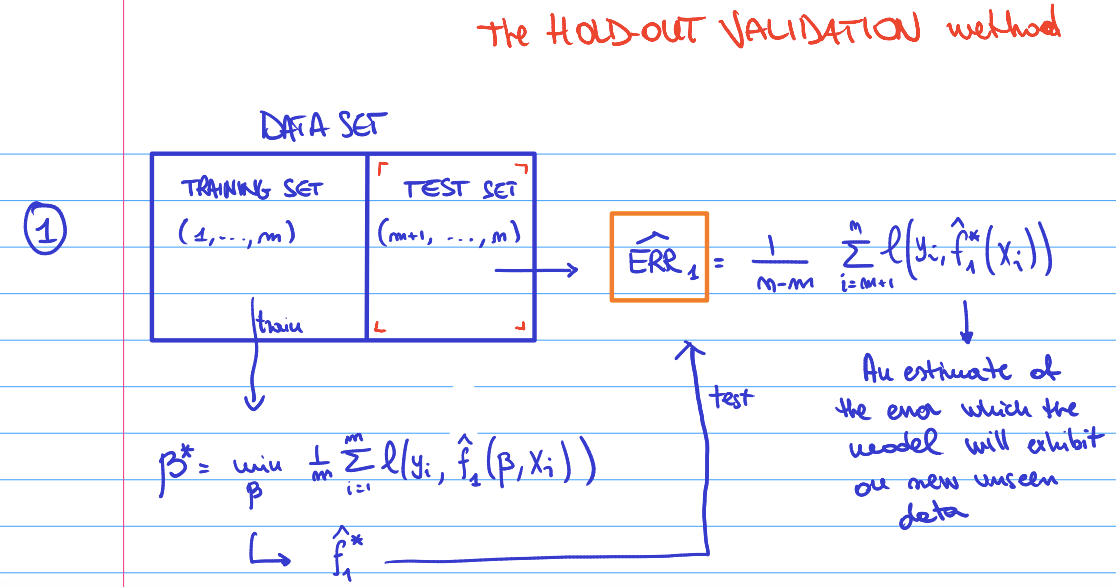 The HOLD-OUT VALIDATION method
DATA SET
TRAINING SET
(1,...,m)
TEST SET
(m+1, ...,n)
1
train
ERR̂₁ = 1/(n-m) ∑_{i=m+1}^{n} l(yᵢ, f̂₁*(xᵢ))
test
An estimate of
the error which the
model will exhibit
on new unseen
data
β* = min_β 1/m ∑_{i=1}^{m} l(yᵢ, f̂₁(β, xᵢ))
f̂₁*